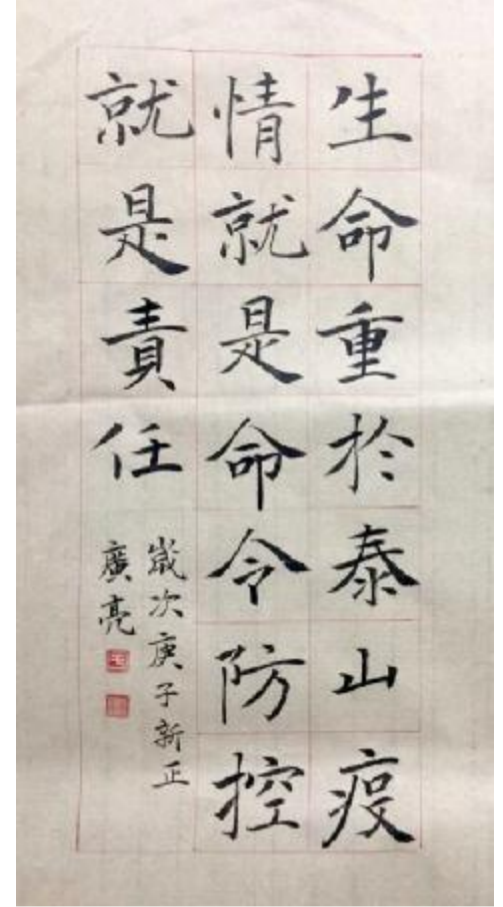 生命重於泰山疫
情就是命令防控
就是責任
歲次庚子新正
廣亮